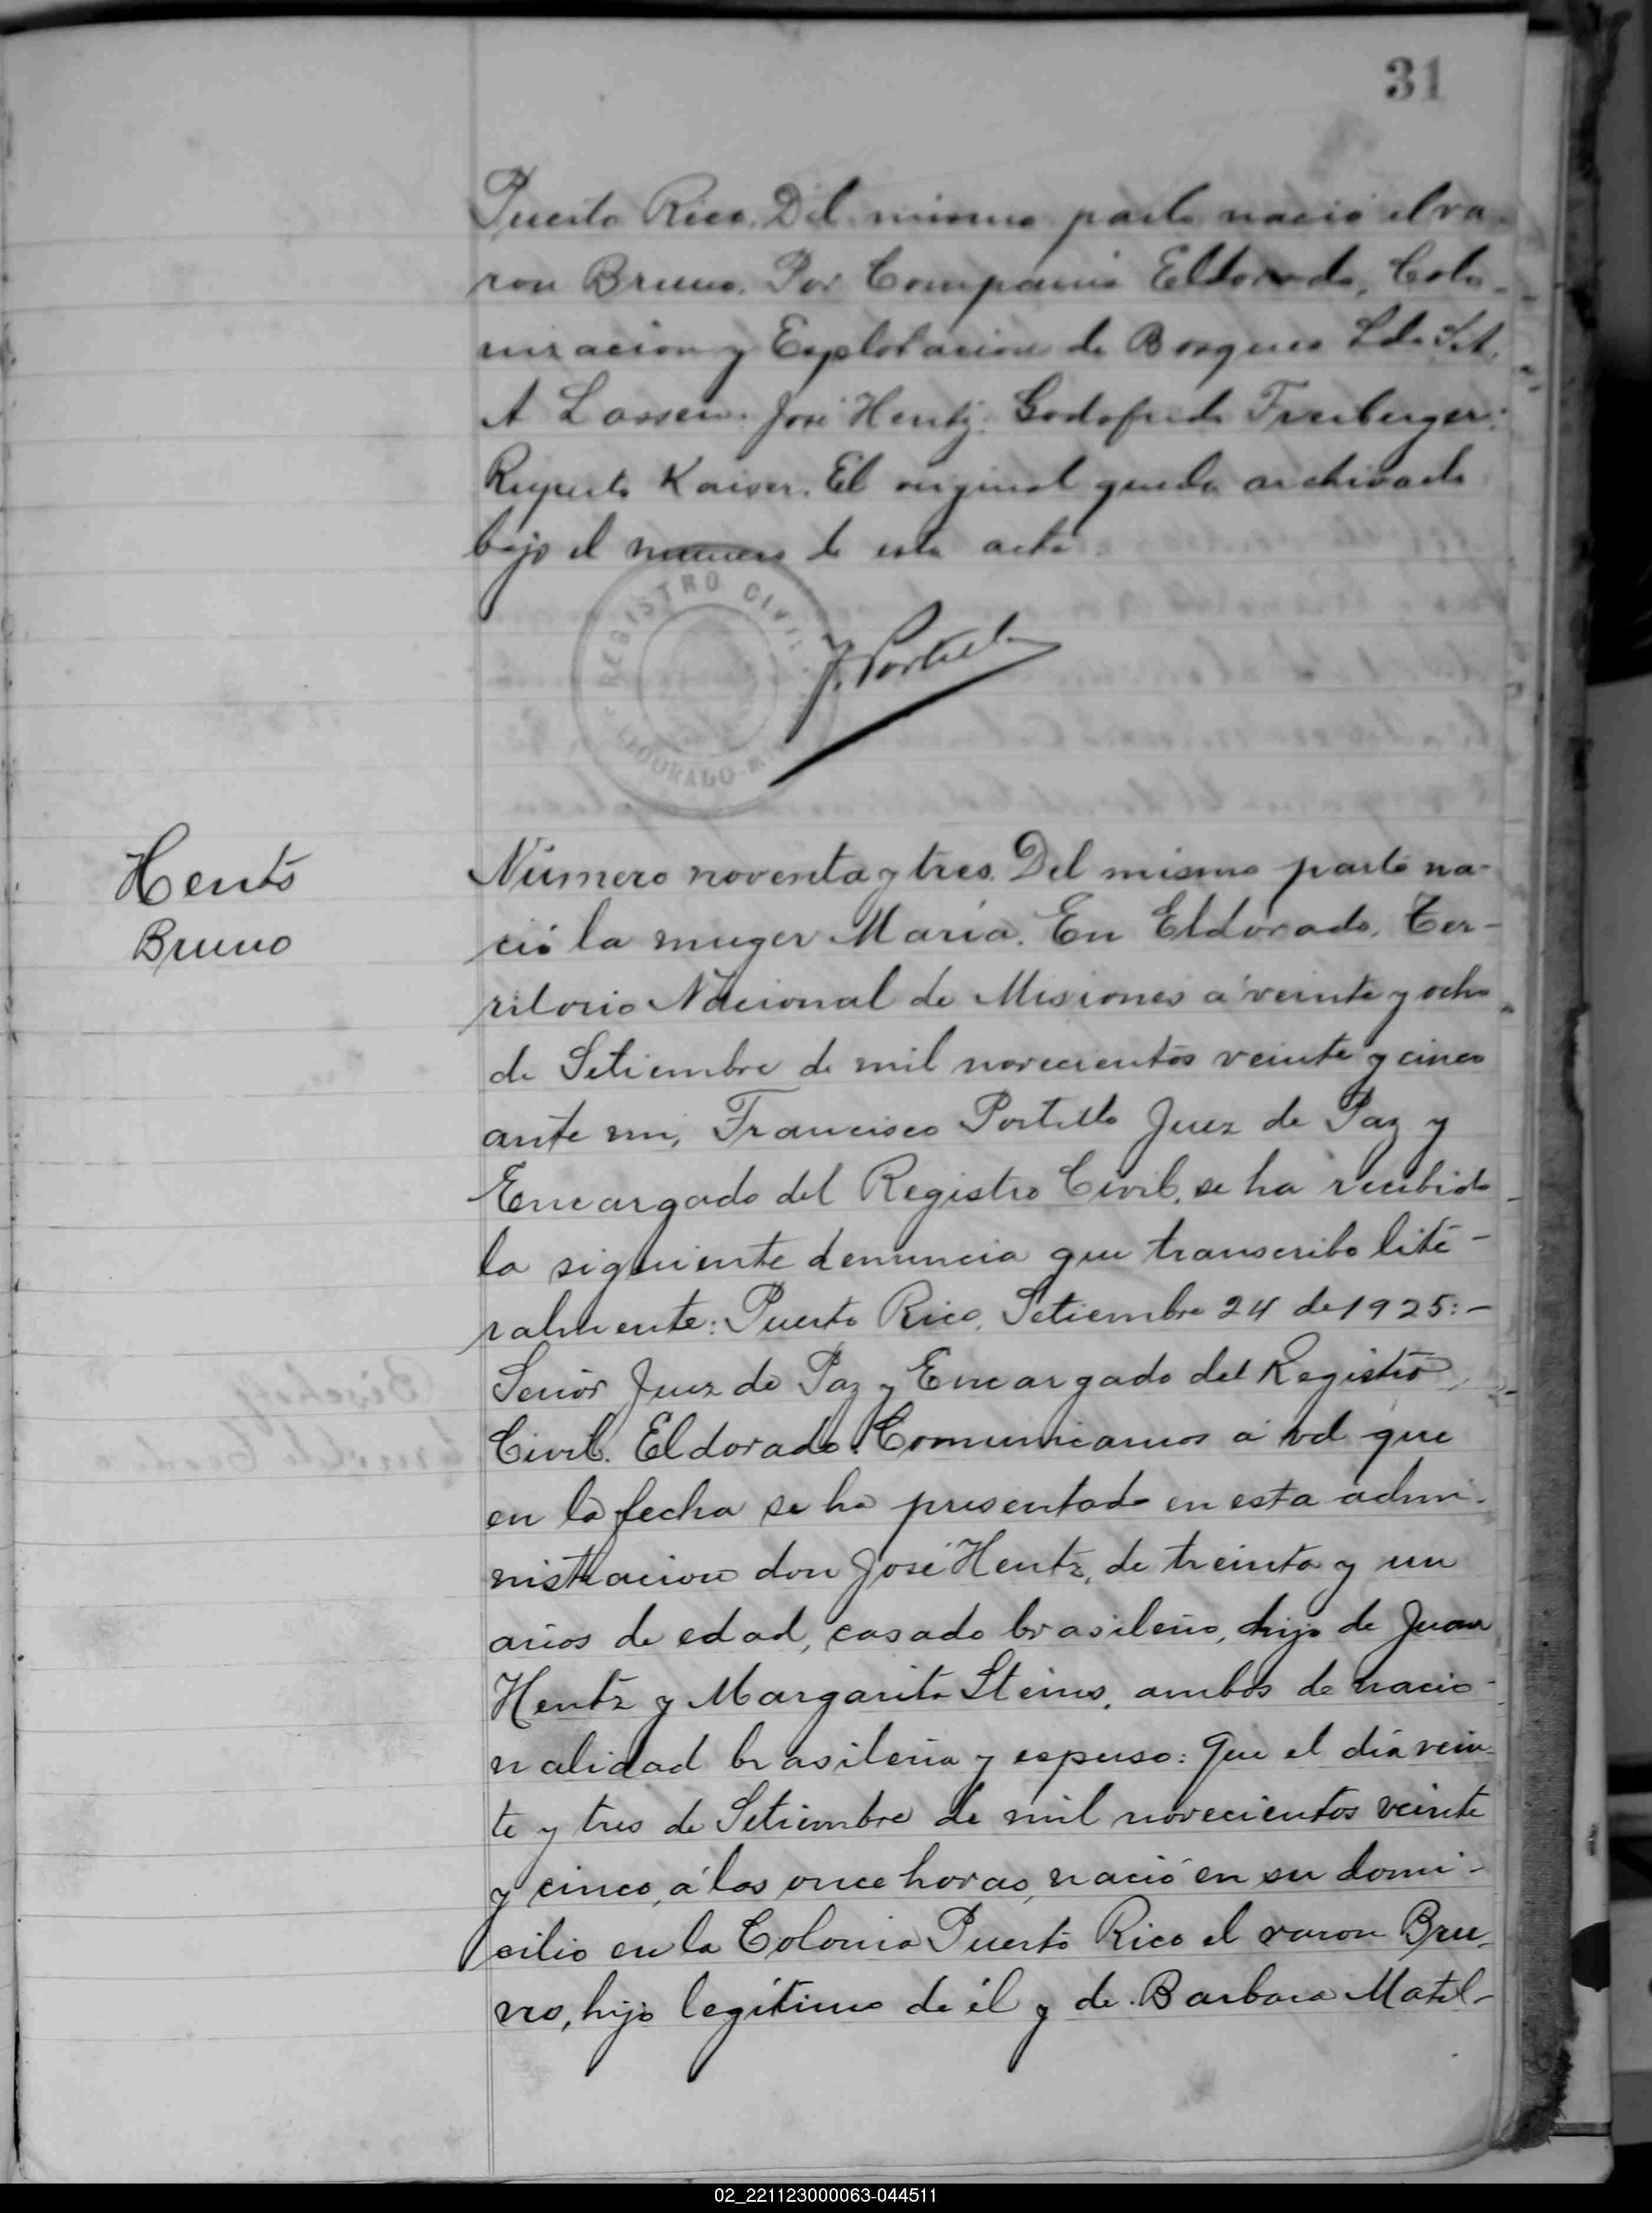 31
Puerto Rico. Del mismo parto nació el va-
ron Bruno. Por Compania Eldorado, Colo-
nizacion y Explotacion de Bosques Lda
A Lassen. José Hentz. Godofredo Freiberger.
Ruperto Kaiser. El original queda archivado
bajo el numero de esta acta.
REGISTRO CIVIL
ELDORADO
F. Portillo
Hents
Bruno
Número noventa y tres. Del mismo parto na-
ció la muger María. En Eldorado, Ter-
ritorio Nacional de Misiones á veinte y ocho
de Setiembre de mil novecientos veinte y cinco
ante mi, Francisco Portillo Juez de Paz y
Encargado del Registro Civil, se ha recibido
la siguiente denuncia que transcribo lite-
ralmente: Puerto Rico, Setiembre 24 de 1925:-
Señor Juez de Paz y Encargado del Registro
Civil. Eldorado. Comunicamos á vd que
en la fecha se ha presentado en esta admi-
nistracion don José Hentz, de treinta y un
años de edad, casado brasileño, hijo de Juan
Hentz y Margarita Steins, ambos de nacio-
nalidad brasileña y espuso: Que el día vein-
te y tres de Setiembre de mil novecientos veinte
y cinco, á las once horas, nació en su domi-
cilio en la Colonia Puerto Rico el varon Bru-
no, hijo legítimo de él y de Barbara Matil-
02_221123000063-044511